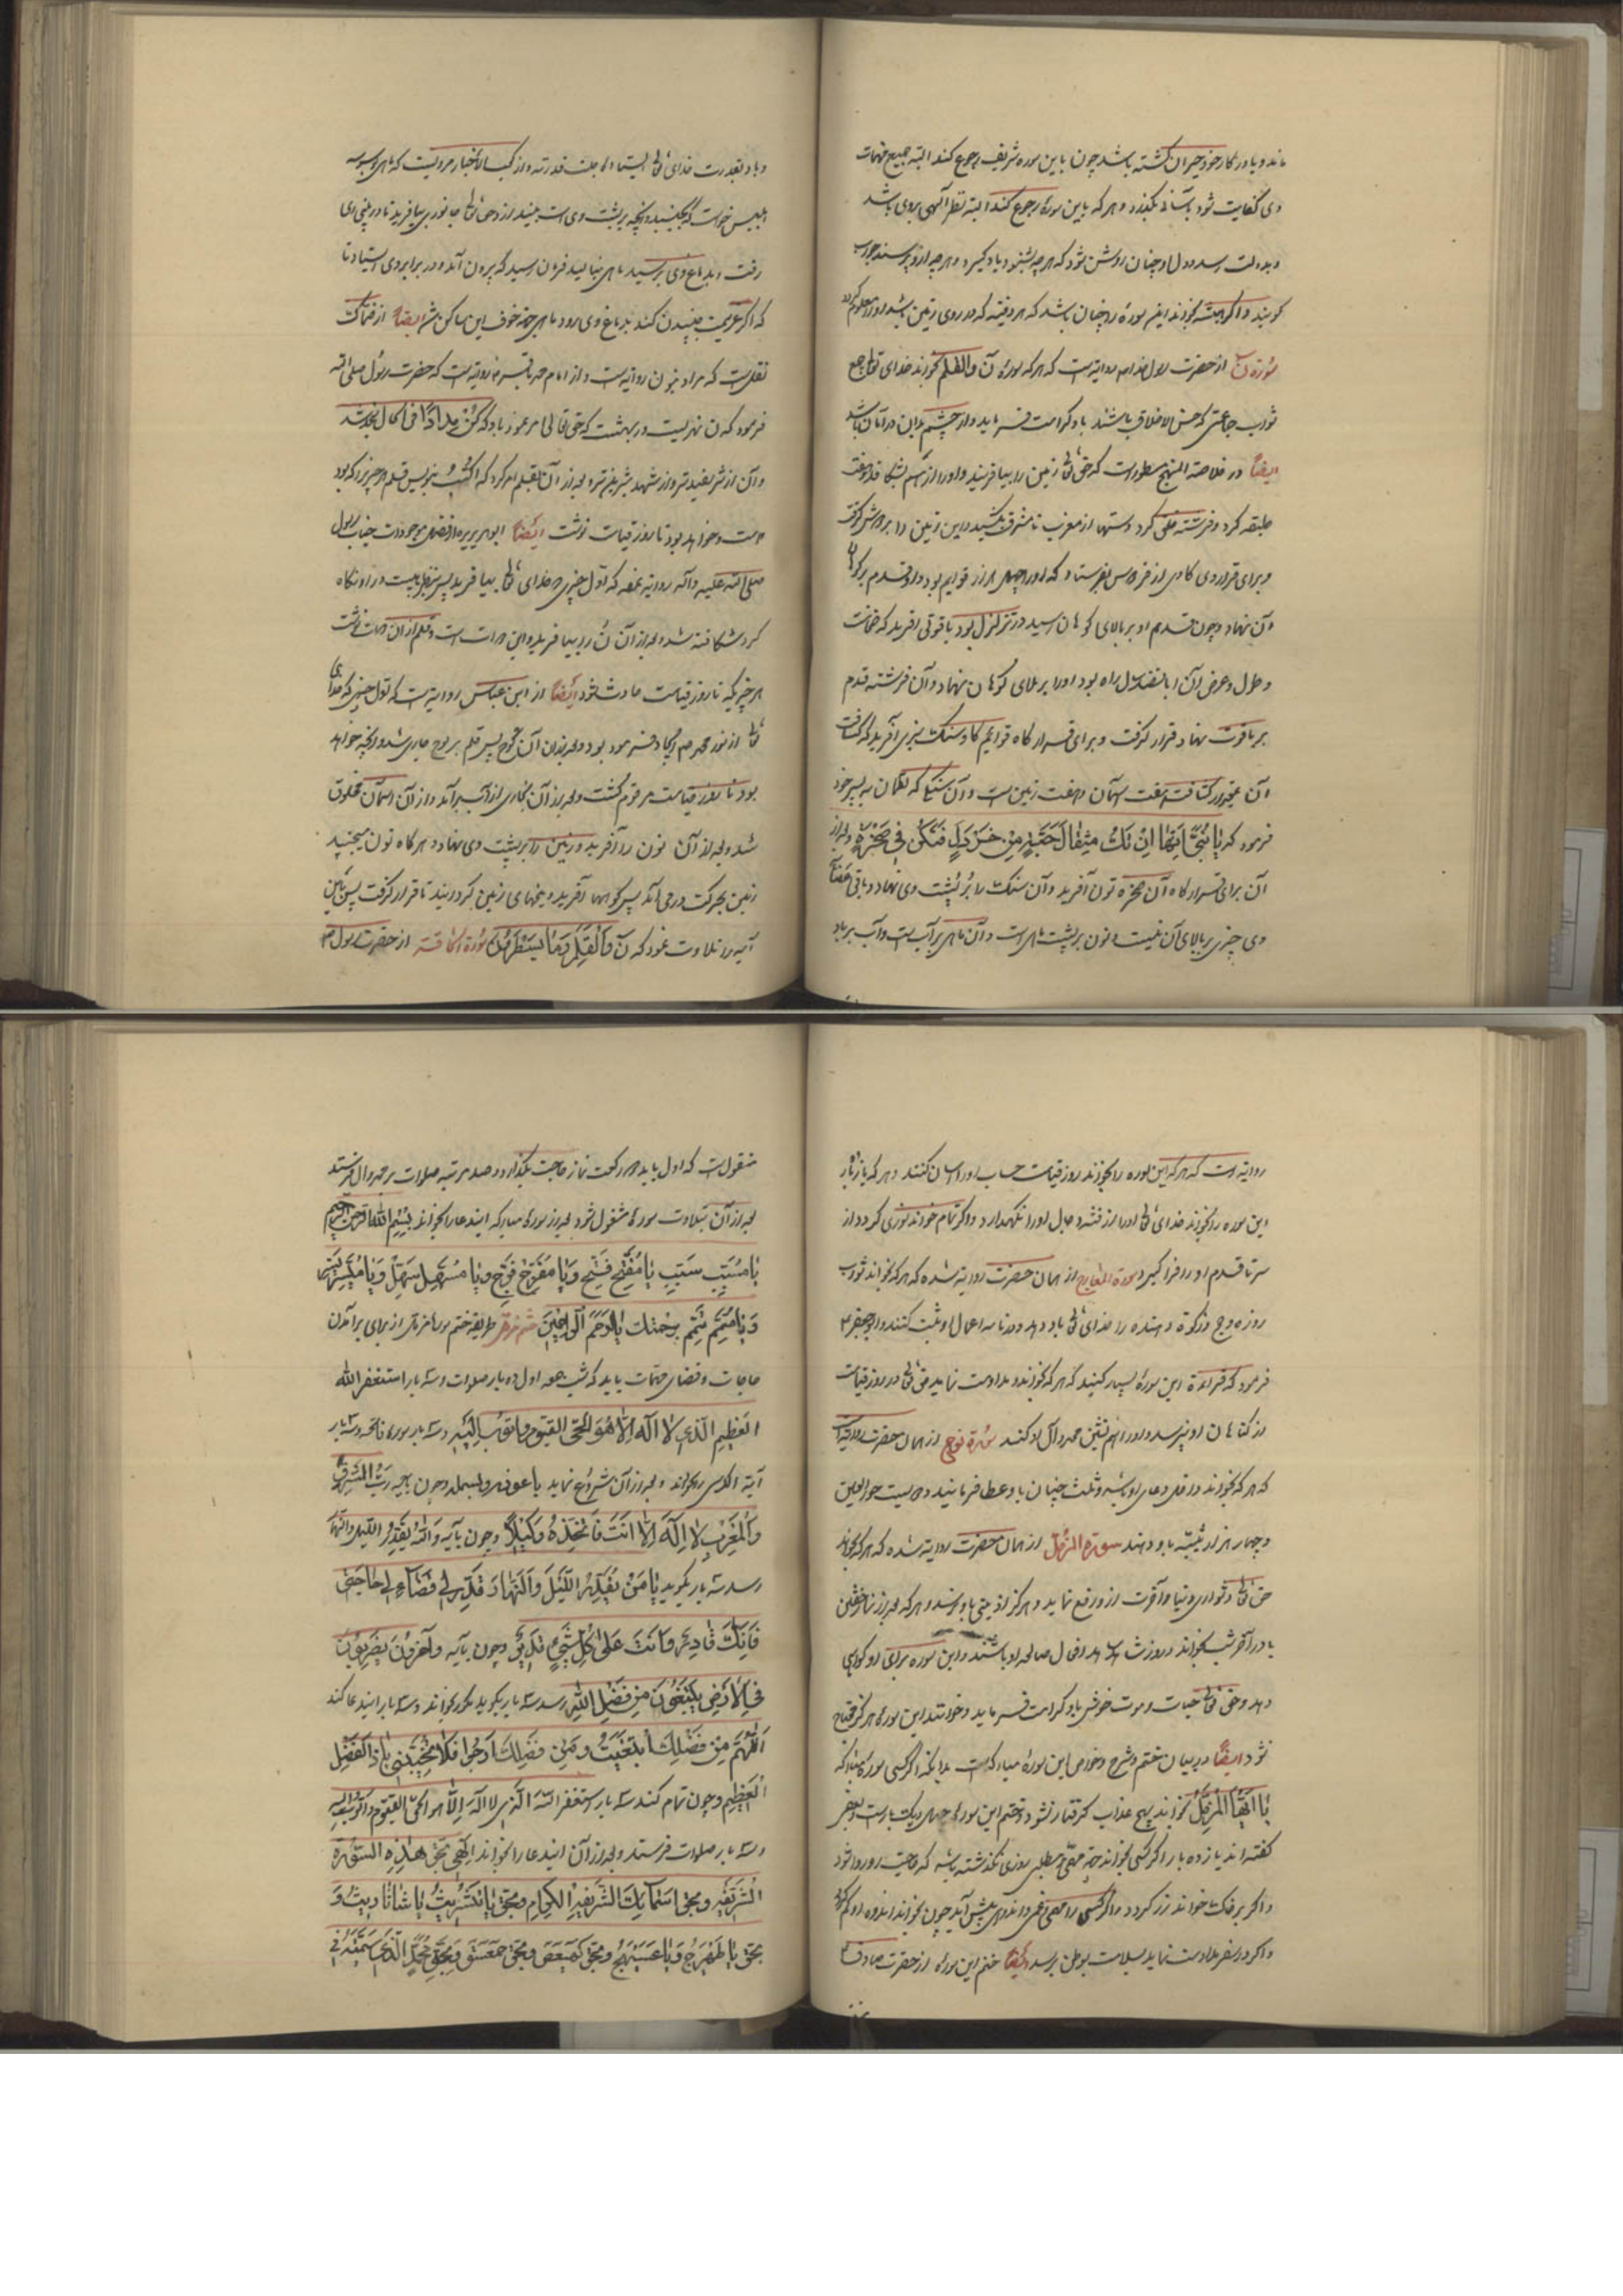 ماند و یا در کار خود حیران گشته باشد چون باین سوره شریفه رجوع کند البته جمیع مهمات
وی کفایت شود و بآسانی بگذرد و هر که باین سوره رجوع کند البته نظر آلهی بروی باشد
و بدولت رسد و دل او چنان روشن شود که هر چه بشنود یاد گیرد و هر چه ازو پرسند جواب
گوید و اگر پیوسته بخواند این سوره را چنان باشد که هر دفینه که در روی زمین باشد او را معلوم گردد
سورة ن از حضرت رسول خدا ص روایة است که هر که سوره ن والقلم بخواند خدای تعالی جمیع
ثواب جماعتی که حسن الاخلاق باشند باو کرامت فرماید و از چشم بد این در امان باشد
ایضاً در خلاصة المنهج مسطور است که حق تعالی زمین را بیافرید و او را از هم بشکافد و هفت
طبقه کرد و فرشته خلق کرد و دستها از مغرب تا مشرق بکشید و این زمین را بر دوش گرفت
و برای قرار وی گاوی از فردوس بفرستاد که او را چهل هزار قوایم بود و او قدم بر کوهان
آن نهاد و چون قدم او بر بالای کوهان رسید در تزلزل بود یاقوتی افرید که ضخامت
و طول و عرض آن پانصد سال راه بود او را بر بالای کوهان نهاد و آن فرشته قدم
بر یاقوت نهاد و قرار گرفت و برای قرارگاه قوایم گاو سنگ سبزی آفرید که کثافت
آن بمقدار کثافت هفت آسمان و هفت زمین است و آن سنگی که لقمان به پسر خود
فرمود که یا بُنَیَّ اِنَّها اِنْ تَكُ مِثْقالَ حَبَّةٍ مِنْ خَرْدَلٍ فَتَكُنْ فی صَخْرَةٍ و بعد از
آن برای قرارگاه آن صخره نون آفرید و آن سنگ را بر پشت وی نهاد و باقی اعضای
وی چیزی بر بالای آن نیست و نون بر پشت ماهی است و آن ماهی بر آب است و آب بر باد
و باد بقدرت خدای تعالی ایستاده جلت قدرته و از کعب الاخبار مرویست که ماهی بوسوسه
ابلیس خواست که بجنبد و آنچه بر پشت وی است بیفتد از وحی تعالی جانوری بیافرید تا در بینی وی
رفت و بدماغ وی برسید ماهی بنالید فرمان رسید که بیرون آمده در برابر وی ایستاد تا
که اگر عزیمت جنبیدن کند بدماغ وی رود ماهی بجهة خوف این ساکن شد ایضاً از ضحاک
نقلست که مراد بنون دواتست و از امام محمد باقر روایتست که حضرت رسول صلی الله
فرمود که ن نهریست در بهشت که حق تعالی مر عزوز باو که کُنْ مِداداً فی الحال بخ شد
و آن از شیر سفیدتر و از شهد شیرین تر و بعد از آن بقلم امر کرد که اُکْتُبْ بنویس قلم هر چیز را که بود
هست و خواهد بود تا روز قیامت نوشت ایضاً ابوهریره از افضل موجودات جناب رسول
صلی الله علیه و آله روایة نموده که اول چیزی که خدای تعالی بیافرید پس بنظر هیبت در او نگاه
کرد شکافته شد و بعد از آن ن را بیافرید و این دوات است و قلم از آن دوات نوشت
هر چیزی که تا روز قیامت حادث شود ایضاً از ابن عباس روایة است که اول چیزی که خدای
تعالی از نور محمد ص ایجاد فرمود بود و بعد از آن لوح پس قلم بر لوح جاری شد و آنچه خواهد
بود تا روز قیامت مرقوم گشت و بعد از آن بخاری از آب برآمد و از آن آسمان مخلوق
شد و بعد از آن نون را آفرید و زمین را بر پشت وی نهاد و هر گاه نون میجنبید
زمین بحرکت درمی آمد پس کوهها آفرید و میخهای زمین گردانید تا قرار گرفت پس این
آیه را تلاوت نمود که ن وَالْقَلَمِ وَما یَسْطُرُونَ سورة الحاقة از حضرت رسول ص
روایة است که هر که این سوره را بخواند روز قیامت حساب او را آسان کنند و هر که یازده بار
این سوره را بخواند خدای تعالی او را از فتنه دجال او را نگهدارد و اگر تمام خواند نوری گردد از
سر تا قدم او را فرا گیرد سورة المعارج از همان حضرت روایة شده که هر که بخواند ثواب
روزه و حج و زکوة دهنده را خدای تعالی باو دهد و در نامه اعمال او ثبت کنند و ابوجعفر ع
فرمود که قراءة این سوره بسیار کنید که هر که بخواند و مداومت نماید حق تعالی در روز قیامت
از گناهان او نپرسد و او را هم نشین محمد و آل او کند سورة نوح از همان حضرت روایة است
که هر که بخواند در قبل دعای او باشد و ثلث جنان باو عطا فرمایند و دویست حورالعین
و چهار هزار ثیبه باو دهند سورة المزمل از همان حضرت روایة شده که هر که بخواند
حق تعالی دشواری دنیا و آخرت از و رفع نماید و هرگز اذیتی باو نرسد و هر که بعد از نماز خفتن
یا در آخر شب بخواند در روز شاهد افعال صالحه او باشند و این سوره برای او گواهی
دهد و حق تعالی حیات و موت خوش باو کرامت فرماید و خواننده این سوره هرگز محتاج
نشود ایضاً در بیان ختم و شرح و خواص این سوره مبارکه است بدانکه اگر کسی سوره مبارکه
یا اَیُّهَا الْمُزَّمِّلُ بخواند هیچ عذاب گرفتار نشود و ختم این سوره چهل و یک بار است و بعضی
گفته اند یازده بار اگر کسی بخواند جهة مهمی و مطلبی روزی نگذشته باشد که حاجت او روا شود
و اگر بر خاک خواند زر گردد و اگر کسی را مهمی و غمی و اندوهی پیش آید چون بخواند اندوه او کم گردد
و اگر در سفر مداومت نماید بسلامت بوطن برسد ایضاً ختم این سوره از حضرت صادق ع
منقولست که اول باید دو رکعت نماز حاجت بگذارد و صد مرتبه صلوات بر محمد و آل فرستد
بعد از آن بتلاوت سوره مشغول شود بعد از سوره مبارکه ایندعا را بخواند بِسْمِ اللهِ الرَّحْمنِ الرَّحیم
یا مُسَبِّبُ سَبِّبْ یا مُفَتِّحُ فَتِّحْ وَیا مُفَرِّجُ فَرِّجْ وَیا مُسَهِّلُ سَهِّلْ وَیا مُیَسِّرُ یَسِّرْ
وَیا مُتَمِّمُ تَمِّمْ بِرَحْمَتِكَ یا اَرْحَمَ الرّاحِمینَ طریقه ختم سوره مزمل از برای برآمدن
حاجات و قضای مهمات باید که شب جمعه اول ده بار صلوات و سه بار استغفر الله
العَظیم الَّذی لا اِلهَ اِلّا هُوَ الحَیُّ القَیّوم و اَتوبُ اِلَیه و سه بار سوره فاتحه و سه بار
آیة الکرسی بخواند و بعد از آن شروع نماید باعوذ و بسمله و چون بآیه رَبُّ الْمَشْرِقِ
وَالْمَغْرِبِ لا اِلهَ اِلّا هُوَ فَاتَّخِذْهُ وَکیلاً و چون بآیه وَاللهُ یُقَدِّرُ اللَّیْلَ وَالنَّهار
رسد سه بار بگوید یا مَنْ یُقَدِّرُ اللَّیْلَ وَالنَّهارَ قَدِّرْ لی قَضاءَ لی حاجَتی
فَاِنَّكَ قادِرٌ وَاَنْتَ عَلی كُلِّ شَیْءٍ قَدیرٌ و چون بآیه وَآخَرُونَ یَضْرِبُونَ
فِی الْاَرْضِ یَبْتَغُونَ مِنْ فَضْلِ اللهِ رسد سه بار بگوید بخواند و سه بار ایندعا کند
اَللّهُمَّ مِنْ فَضْلِكَ اَبْتَغَیْتُ وَمِنْ فَضْلِكَ اَرْجُو فَلا تُخَیِّبْنی یا ذَا الْفَضْلِ
الْعَظیم و چون تمام کند سه بار استغفر الله الَّذی لا اِله اِلّا هو الحیّ القیّوم و اتوب الیه
و سه بار صلوات فرستد و بعد از آن ایندعا را بخواند اِلهی بِحَقِّ هذِهِ السُّورَةِ
الشَّریفَةِ وَبِحَقِّ اَسْمائِكَ الشَّریفَةِ الْکِرامِ وَبِحَقِّ
وَبِحَقِّ کهیعص وَبِحَقِّ حمعسق وَبِحَقِّ مُحَمَّدٍ الَّذی سَمَّیْتَهُ فی